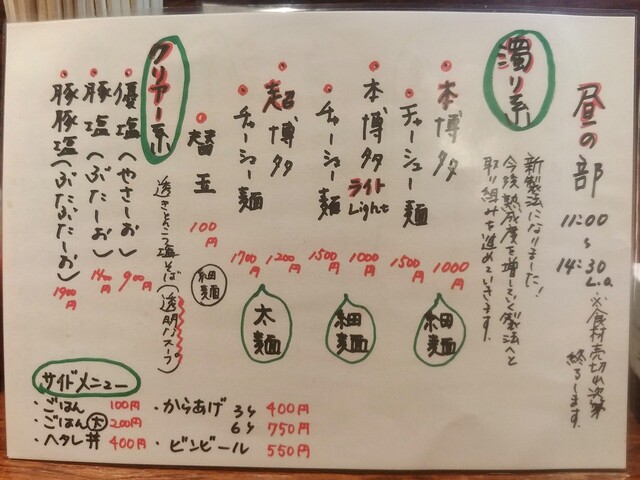 昼の部
11:00
~
14:30
L.O.
※食材売切れ次第
終了します.
濁り系
新製法になりました!
今後熟成度を増していく製法へと
取り組みを進めていきます.
・本博多 1000円
・チャーシュー麺 1500円
細麺
・本博多ライト Light 1000円
・チャーシュー麺 1500円
細麺
・超博多 1200円
・チャーシュー麺 1700円
太麺
・替玉 100円
細麺
クリアー系
透きとおった塩そば(透明スープ)
・優塩(やさしお) 900円
・豚塩(ぶたしお) 1400円
・豚豚塩(ぶたぶたしお) 1900円
サイドメニュー
・ごはん 100円
・ごはん 大 200円
・ヘタレ丼 400円
・からあげ 3ヶ 400円
6ヶ 750円
・ビンビール 550円